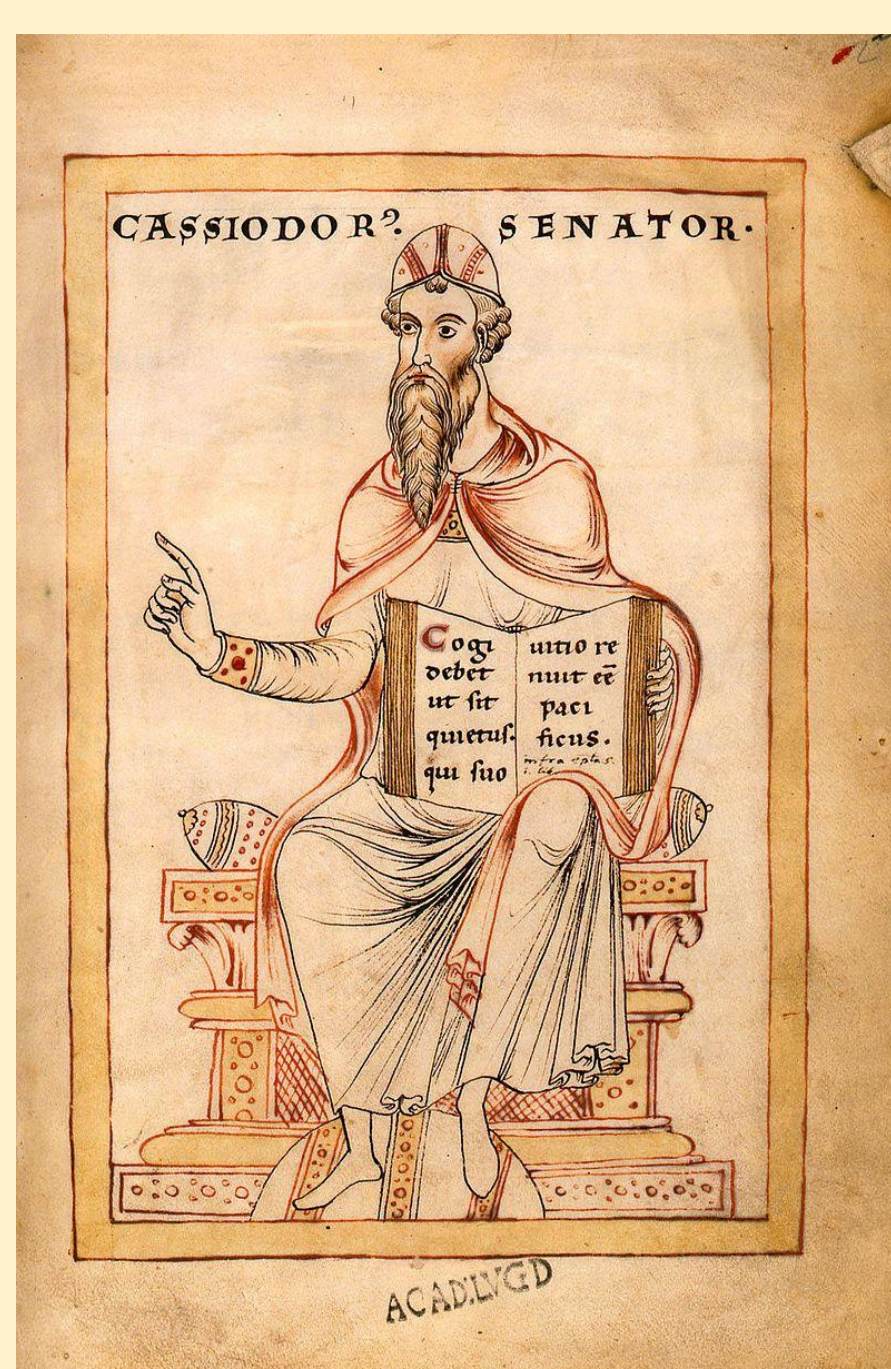 CASSIODORꝰ. SENATOR.
Cogi
debet
ut sit
quietus.
qui suo
uitio re
nuit eē
paci
ficus.
infra eplas
i. lib
ACAD. LVGD